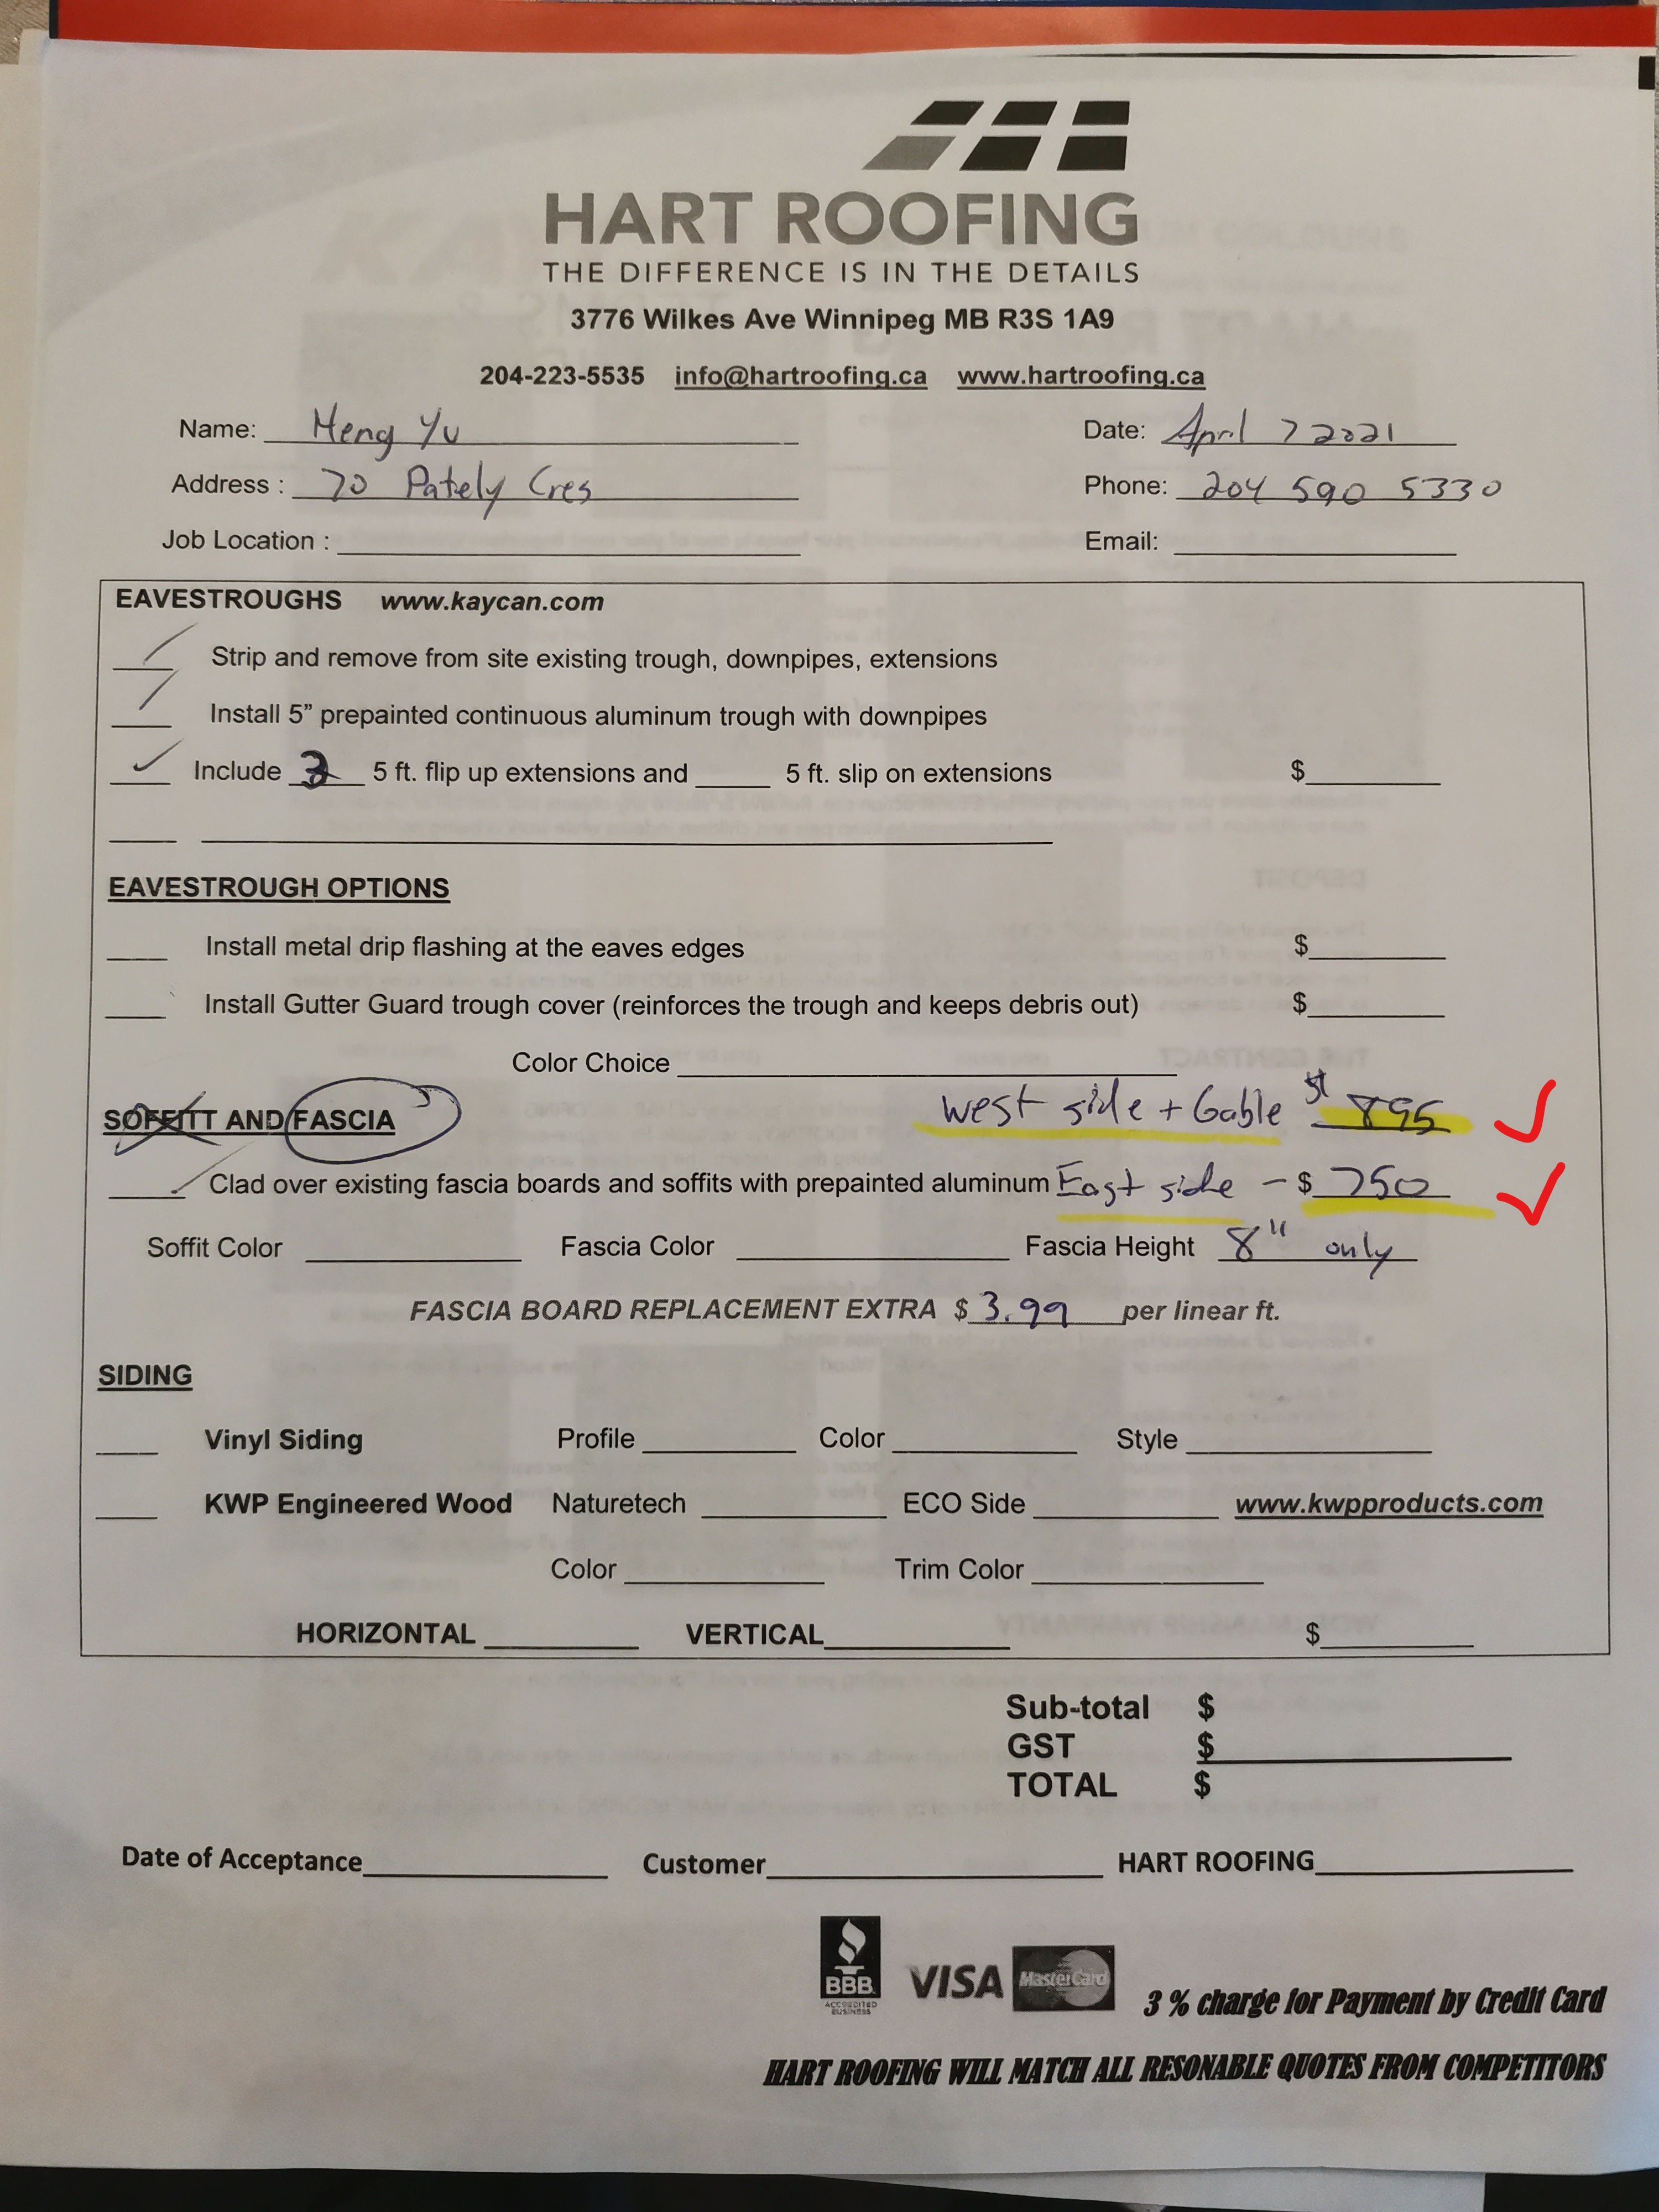 HART ROOFING
THE DIFFERENCE IS IN THE DETAILS
3776 Wilkes Ave Winnipeg MB R3S 1A9
204-223-5535 info@hartroofing.ca www.hartroofing.ca
Name: Heng Yu Date: April 7 2021
Address : 70 Pately Cres Phone: 204 590 5330
Job Location : Email:
EAVESTROUGHS www.kaycan.com
Strip and remove from site existing trough, downpipes, extensions
Install 5” prepainted continuous aluminum trough with downpipes
Include 3 5 ft. flip up extensions and 5 ft. slip on extensions $
EAVESTROUGH OPTIONS
Install metal drip flashing at the eaves edges $
Install Gutter Guard trough cover (reinforces the trough and keeps debris out) $
Color Choice
SOFFITT AND FASCIA west side + Gable $ 895
Clad over existing fascia boards and soffits with prepainted aluminum East side - $ 750
Soffit Color Fascia Color Fascia Height 8" only
FASCIA BOARD REPLACEMENT EXTRA $ 3.99 per linear ft.
SIDING
Vinyl Siding Profile Color Style
KWP Engineered Wood Naturetech ECO Side www.kwpproducts.com
Color Trim Color
HORIZONTAL VERTICAL $
Sub-total $
GST $
TOTAL $
Date of Acceptance Customer HART ROOFING
BBB ACCREDITED BUSINESS VISA MasterCard 3 % charge for Payment by Credit Card
HART ROOFING WILL MATCH ALL RESONABLE QUOTES FROM COMPETITORS